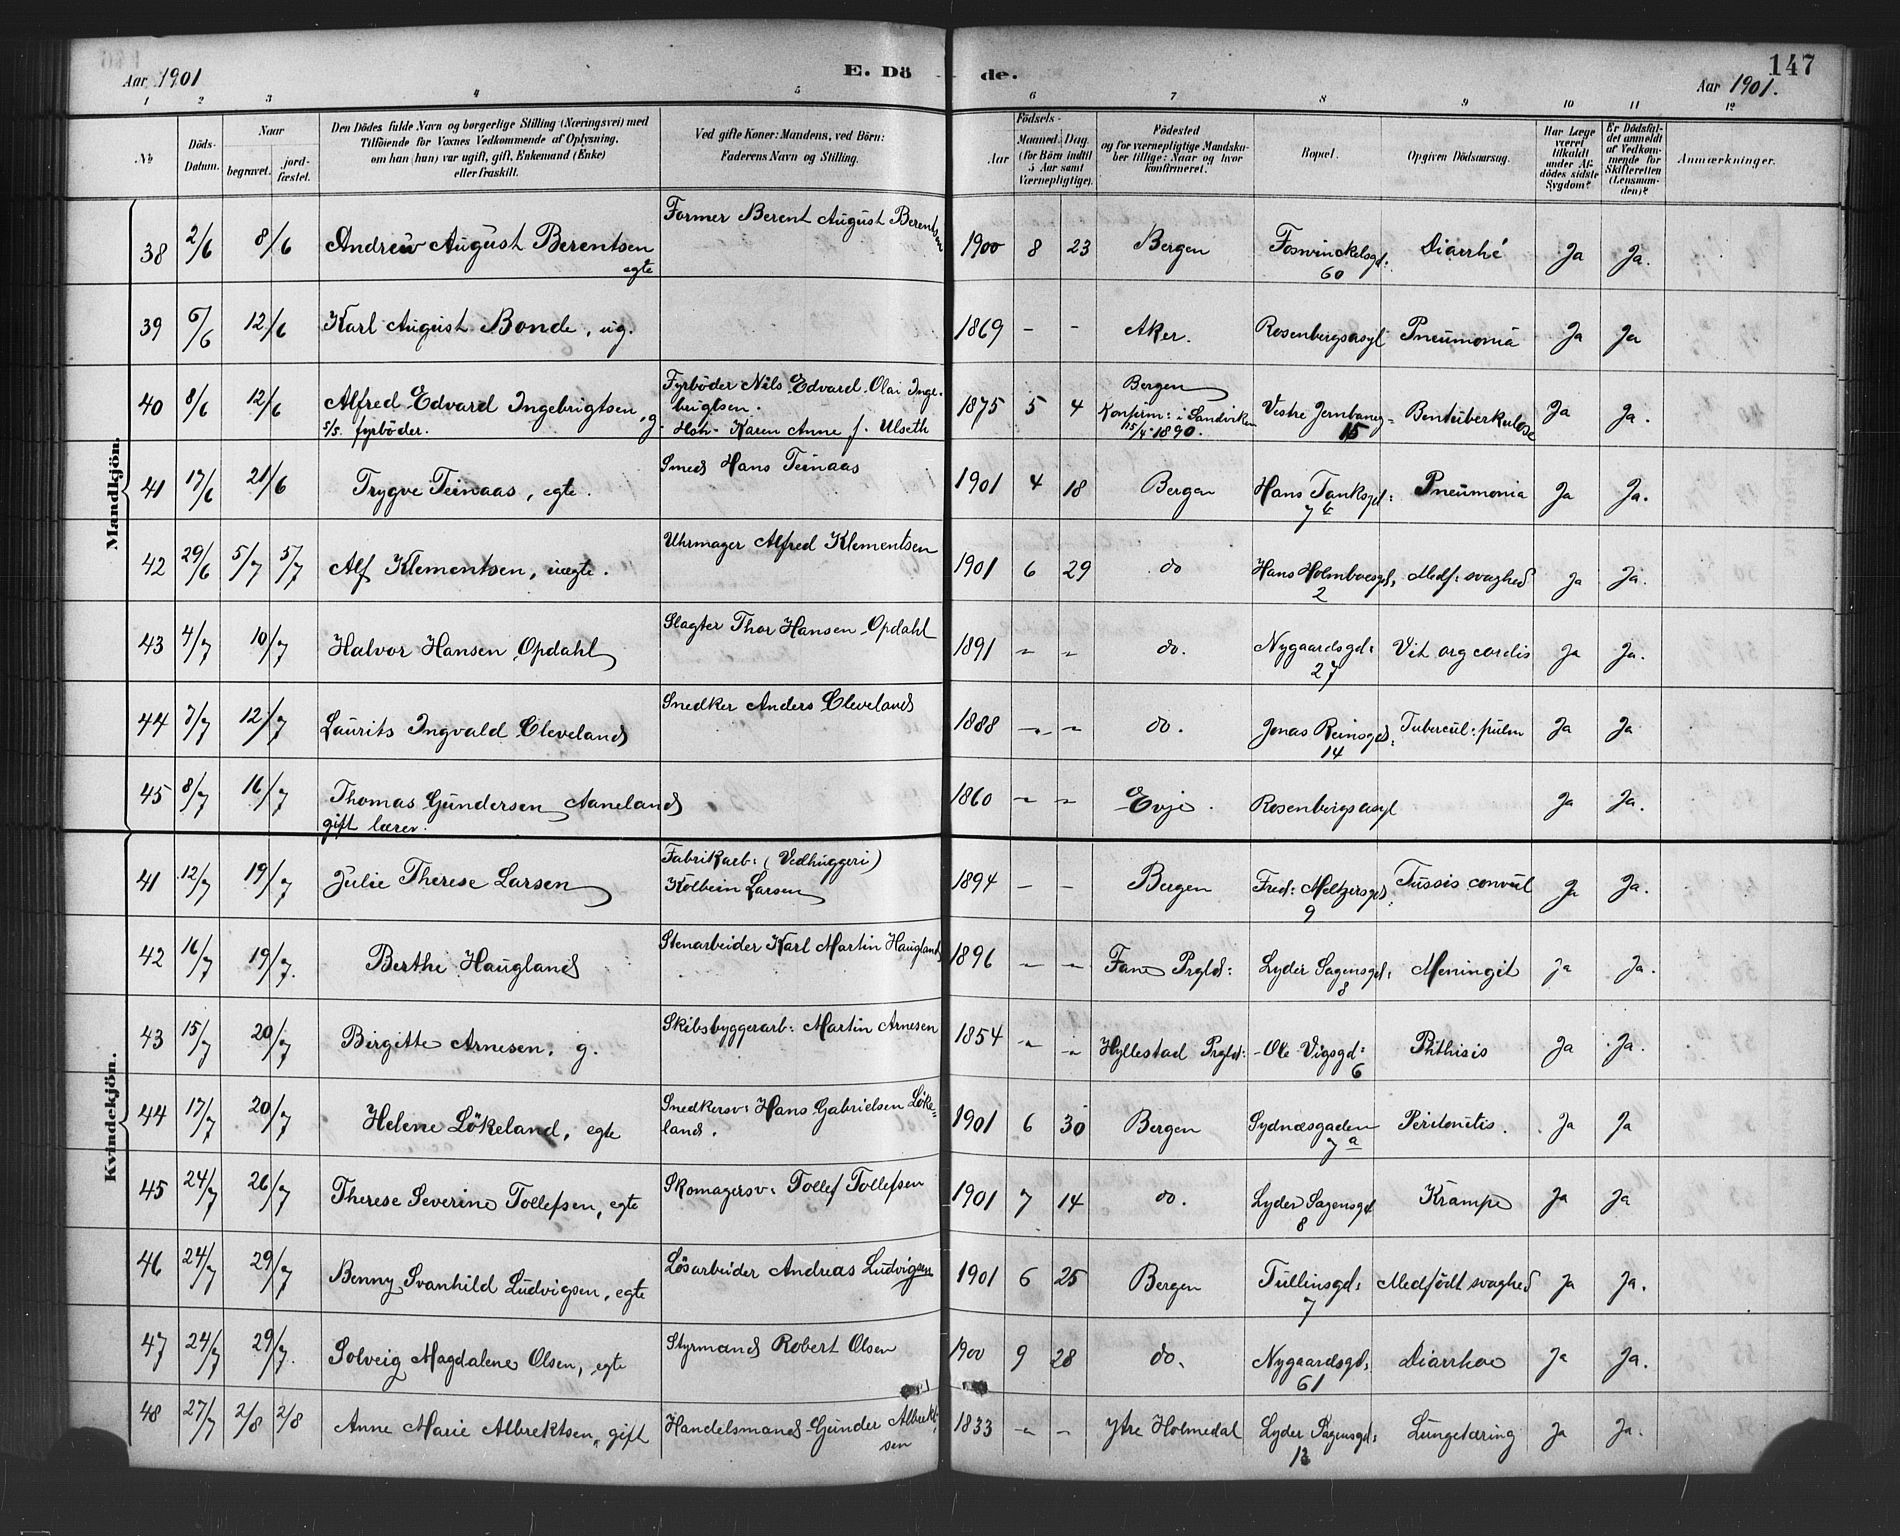 Aar 1901
E. Dö
de.
147
Aar 1901.
1 2 3 4 5 6 7 8 9 10 11 12
№
Döds-Datum.
Naar
begravet.
jord-fæstet.
Den Dödes fulde Navn og borgerlige Stilling (Næringsvei) med
Tilföiende for Voxnes Vedkommende af Oplysning,
om han (hun) var ugift, gift, Enkemand (Enke)
eller fraskilt.
Ved gifte Koner: Mandens, ved Börn:
Faderens Navn og Stilling.
Födsels-
Aar
Maaned. Dag.
(for Börn indtil
5 Aar samt
Værnepligtige).
Födested
og for værnepligtige Mandska-
ber tillige: Naar og hvor
konfirmeret.
Bopæl.
Opgiven Dödsaarsag.
Har Læge
været
tilkaldt
under Af-
dödes sidste
Sygdom?
Er Dödsfal-
det anmeldt
af Vedkom-
mende for
Skifteretten
(Lensman-
den)?
Anmærkninger.
Mandkjön.
38 2/6 8/6 Andrew August Berentsen egte Former Berent August Berentsen 1900 8 23 Bergen Foswinckelsgd: 60 Diarrhé Ja Ja.
39 6/6 12/6 Karl August Bonde, ug. 1869 - - Aker. Rosenbergsasyl Pneumonia Ja Ja
40 8/6 12/6 Alfred Edvard Ingebrigtsen, g. s/s. fyrböder. Fyrböder Nils Edvard Olai Inge-brigtsen. Hstr. Karen Anne f. Ulseth 1875 5 4 Bergen Konfirm: i Sandviken 15/4 1890. Vestre Jernbaneg- 15 Bentuberkulose Ja Ja.
41 17/6 21/6 Trygve Teinaas, egte. Smed Hans Teinaas 1901 4 18 Bergen Hans Tanksgd: 7 Pneumonia Ja Ja.
42 29/6 5/7 5/7 Alf Klementsen, uægte. Uhrmager Alfred Klementsen 1901 6 29 do Hans Holmboesgd: 2 Medf: svaghed Ja Ja.
43 4/7 10/7 Halvor Hansen Opdahl Slagter Thor Hansen Opdahl 1891 - - do. Nygaardsgd: 27 Vit org cordis Ja Ja.
44 7/7 12/7 Laurits Ingvald Cleveland Snedker Anders Cleveland 1888 - - do. Jonas Reinsgd: 14 Tubercul: pulm Ja Ja
45 8/7 16/7 Thomas Gundersen Aaneland gift lærer. 1860 - - Evje. Rosenbergsasyl Ja Ja.
Kvindekjön.
41 12/7 19/7 Julie Therese Larsen Fabrikarb: (Vedhuggeri) Kolbein Larsen 1894 - - Bergen Fred: Meltzersgd: 9 Tussis convul Ja Ja.
42 16/7 19/7. Berthe Haugland Stenarbeider Karl Martin Haugland 1896 - - Fane Prgld: Lyder Sagensgd: 8 Meningit Ja Ja.
43 15/7 20/7 Birgitte Arnesen, g. Skibsbyggerarb: Martin Arnesen 1854 - - Hyllestad Prgld: Ole Vigsgd: 6 Phthisis Ja Ja.
44 17/7 20/7 Helene Lökeland, egte Snedkersv: Hans Gabrielsen Löke-land. 1901 6 30 Bergen Sydnæsgaden 7 a Peritonitis. Ja Ja
45 24/7 26/7 Therese Severine Tollefsen, egte Skomagersv: Tollef Tollefsen 1901 7 14 do. Lyder Sagensgd 8 Krampe Ja Ja
46 24/7 29/7 Benny Svanhild Ludvigsen, egte Lösarbeider Andreas Ludvigsen 1901 6 25 Bergen Tullinsgd: 7 Medfödt svaghed Ja Ja.
47 24/7 29/7. Solveig Magdalene Olsen, egte Styrmand Robert Olsen 1900 9 28 do. Nygaardsgd: 61 Diarrhoe Ja Ja.
48 27/7 2/8 2/8 Anne Marie Albrektsen, gift Handelsmand Gunder Albrekt-sen 1833 - - Ytre Holmedal Lyder Sagensgd: 13 Lungetæring Ja Ja.